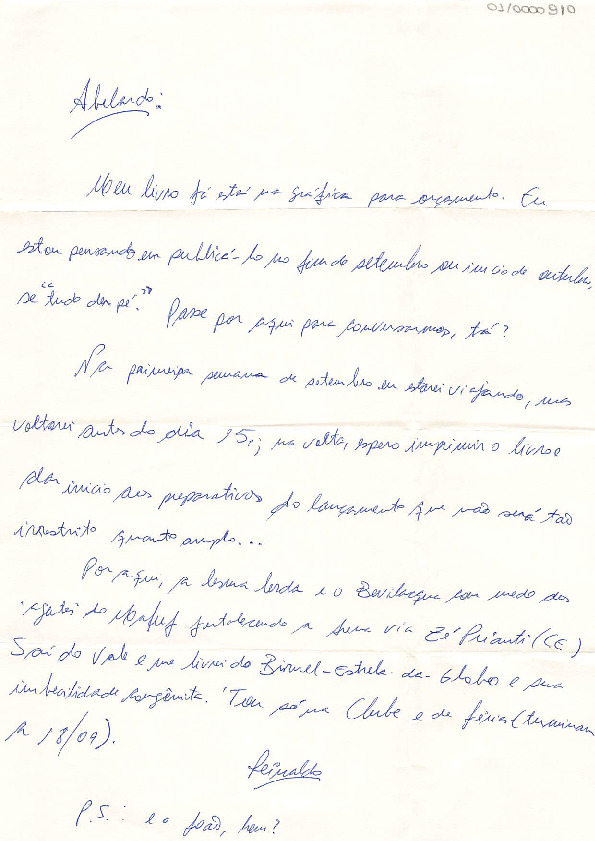 01/0000910
Abelardo:
Meu livro já está na gráfica para orçamento. Eu
estou pensando em publicá-lo no fim de setembro ou início de outubro,
se "tudo der pé". Passe por aqui para conversarmos, tá?
Na primeira semana de setembro eu estarei viajando, mas
voltarei antes do dia 15; na volta, espero imprimir o livro e
dar início aos preparativos do lançamento que não será tão
irrestrito quanto amplo...
Por aqui, a lesma lerda e o Bevilacqua com medo dos
do fortalecendo a via Zé Prianti (CE)
Saí do Vale e me livrei do -Estrela-da-Globo e sua
imbecilidade congênita. Tou só na Clube e de férias (terminam
a 18/09).
Reinaldo
P.S.: e o João, hem?